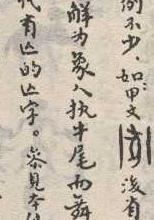 例不少，如：甲文 後有
解为象人执牛尾而舞
代有亾的亾字。参见本